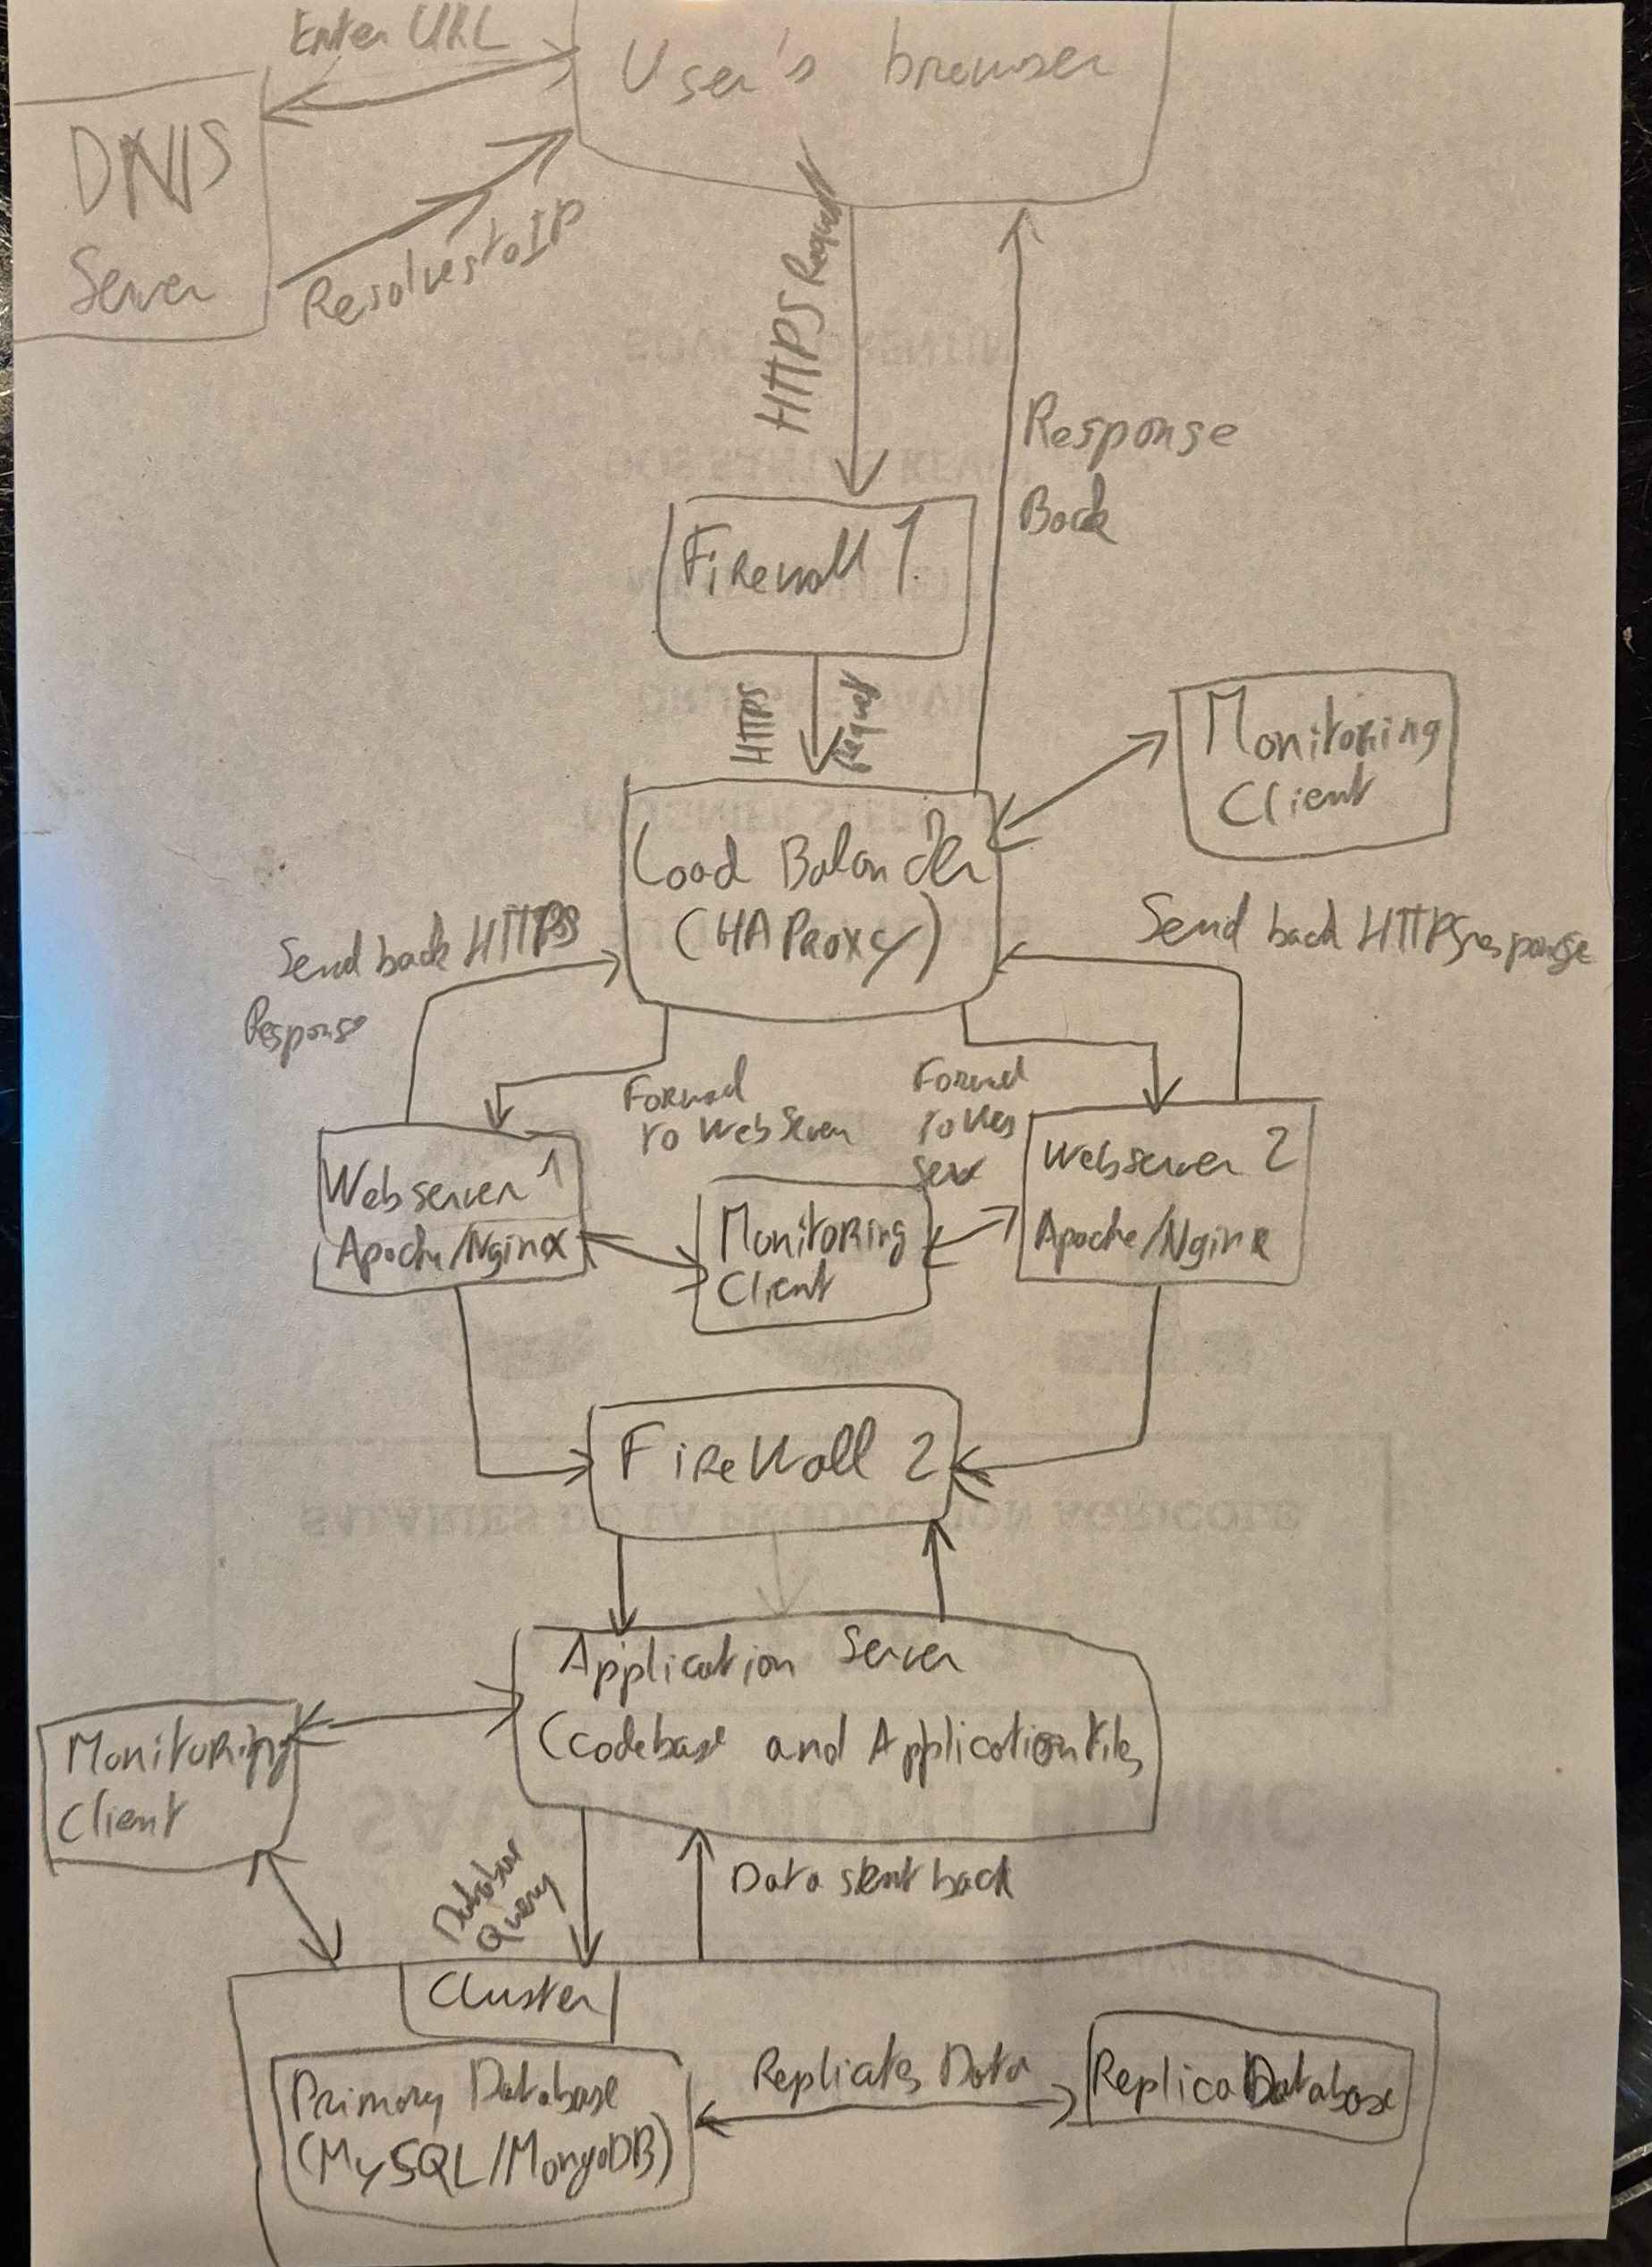 Enter URL
User's browser
DNS
Server
Resolves to IP
HTTPS Request
Response
Back
Firewall 1
HTTPS
Request
Monitoring
Client
Load Balancer
(HAProxy)
Send back HTTPS
Response
Send back HTTPS response
Forward
to WebServer
Forward
to Web
Server
Webserver 1
Apache/Nginx
Monitoring
Client
Webserver 2
Apache/Nginx
FireWall 2
Application Server
(codebase and Application Files
Monitoring
Client
Database
Query
Data sent back
Cluster
Primary Database
(MySQL/MongoDB)
Replicates Data
Replica Database